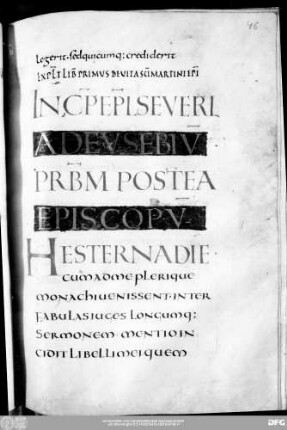 46
legerit· sed quicumq: crediderit
EXPLT LIB PRIMUS DE UITA SCI MARTINI EPI
INCP EPL SEVERI
AD EVSEBIV
PRBM POSTEA
EPISCOPV
HESTERNA DIE·
cum ad me plerique
monachi uenissent· inter
fabulas iuges longumq:
sermonem mentio in
cidit libelli mei quem
DFG